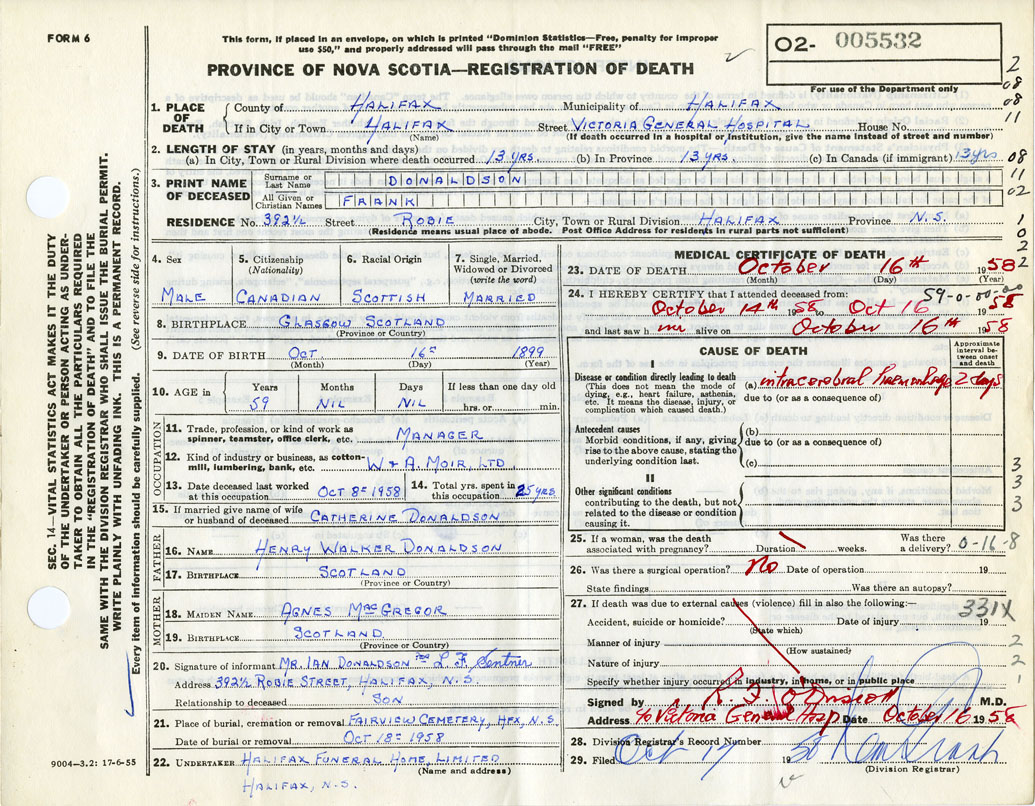 FORM 6
This form, if placed in an envelope, on which is printed "Dominion Statistics—Free, penalty for improper
use $50," and properly addressed will pass through the mail "FREE"
PROVINCE OF NOVA SCOTIA—REGISTRATION OF DEATH
O2- 005532
For use of the Department only
SEC. 14—VITAL STATISTICS ACT MAKES IT THE DUTY
OF THE UNDERTAKER OR PERSON ACTING AS UNDER-
TAKER TO OBTAIN ALL THE PARTICULARS REQUIRED
IN THE "REGISTRATION OF DEATH" AND TO FILE THE
SAME WITH THE DIVISION REGISTRAR WHO SHALL ISSUE THE BURIAL PERMIT.
WRITE PLAINLY WITH UNFADING INK. THIS IS A PERMANENT RECORD.
Every item of information should be carefully supplied. (See reverse side for instructions.)
1. PLACE OF DEATH
County of HALIFAX Municipality of HALIFAX
If in City or Town HALIFAX Street VICTORIA GENERAL HOSPITAL House No.
(Name) (If death occurred in a hospital or institution, give the name instead of street and number)
2. LENGTH OF STAY (in years, months and days)
(a) In City, Town or Rural Division where death occurred 13 YRS. (b) In Province 13 YRS. (c) In Canada (if immigrant) 13 yrs
3. PRINT NAME OF DECEASED
Surname or Last Name DONALDSON
All Given or Christian Names FRANK
RESIDENCE No. 392½ Street ROBIE City, Town or Rural Division HALIFAX Province N.S.
(Residence means usual place of abode. Post Office Address for residents in rural parts not sufficient)
4. Sex
MALE
5. Citizenship
(Nationality)
CANADIAN
6. Racial Origin
SCOTTISH
7. Single, Married, Widowed or Divorced
(write the word)
MARRIED
8. BIRTHPLACE GLASGOW SCOTLAND
(Province or Country)
9. DATE OF BIRTH OCT. 16ᵀ 1899
(Month) (Day) (Year)
10. AGE in
Years Months Days If less than one day old
59 NIL NIL hrs. or min.
OCCUPATION
11. Trade, profession, or kind of work as
spinner, teamster, office clerk, etc. MANAGER
12. Kind of industry or business, as cotton-
mill, lumbering, bank, etc. W & A. MOIR, LTD.
13. Date deceased last worked
at this occupation OCT 8ᵀ 1958
14. Total yrs. spent in
this occupation 25 YRS
15. If married give name of wife
or husband of deceased CATHERINE DONALDSON
FATHER
16. NAME HENRY WALKER DONALDSON
17. BIRTHPLACE SCOTLAND
(Province or Country)
MOTHER
18. MAIDEN NAME AGNES MACGREGOR
19. BIRTHPLACE SCOTLAND
(Province or Country)
20. Signature of informant MR. IAN DONALDSON per L. F. Sentner
Address 392½ ROBIE STREET, HALIFAX, N.S.
Relationship to deceased SON
21. Place of burial, cremation or removal FAIRVIEW CEMETERY, HFX, N.S.
Date of burial or removal OCT 18ᵀ 1958
22. UNDERTAKER HALIFAX FUNERAL HOME, LIMITED
(Name and address)
HALIFAX, N.S.
9004—3.2: 17-6-55
MEDICAL CERTIFICATE OF DEATH
23. DATE OF DEATH October 16th 1958
(Month) (Day) (Year)
24. I HEREBY CERTIFY that I attended deceased from: 59-0-00-00
October 14th 1958 to Oct 16 1958
and last saw h im alive on October 16th 1958
CAUSE OF DEATH
Approximate interval between onset and death
I
Disease or condition directly leading to death
(This does not mean the mode of
dying, e.g., heart failure, asthenia,
etc. It means the disease, injury, or
complication which caused death.)
(a) intracerebral haemorrhage 2 days
due to (or as a consequence of)
Antecedent causes
Morbid conditions, if any, giving
rise to the above cause, stating the
underlying condition last.
(b)
due to (or as a consequence of)
(c)
II
Other significant conditions
contributing to the death, but not
related to the disease or condition
causing it.
25. If a woman, was the death
associated with pregnancy? Duration weeks. Was there
a delivery? 0-16-8
26. Was there a surgical operation? No Date of operation 19
State findings Was there an autopsy?
27. If death was due to external causes (violence) fill in also the following:—
331X
Accident, suicide or homicide? Date of injury 19
(State which)
Manner of injury
(How sustained)
Nature of injury
Specify whether injury occurred in industry, in home, or in public place
Signed by M.D.
Address c/o Victoria General Hosp. Date October 16 1958
28. Division Registrar's Record Number
29. Filed Oct 17 1958
(Division Registrar)
2
08
08
11
08
11
02
1
0
2
2
3
3
3
2
2
1